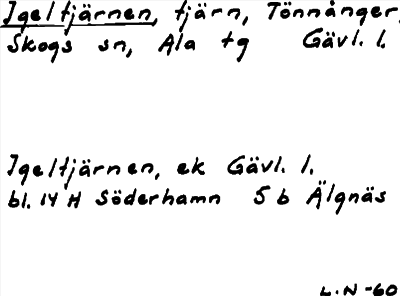 Igeltjärnen, tjärn, Tönnånger,
Skogs sn, Ala tg Gävl. l.
Igeltjärnen, ek Gävl. l.
bl. 14 H Söderhamn 5 b Älgnäs
L.N -60